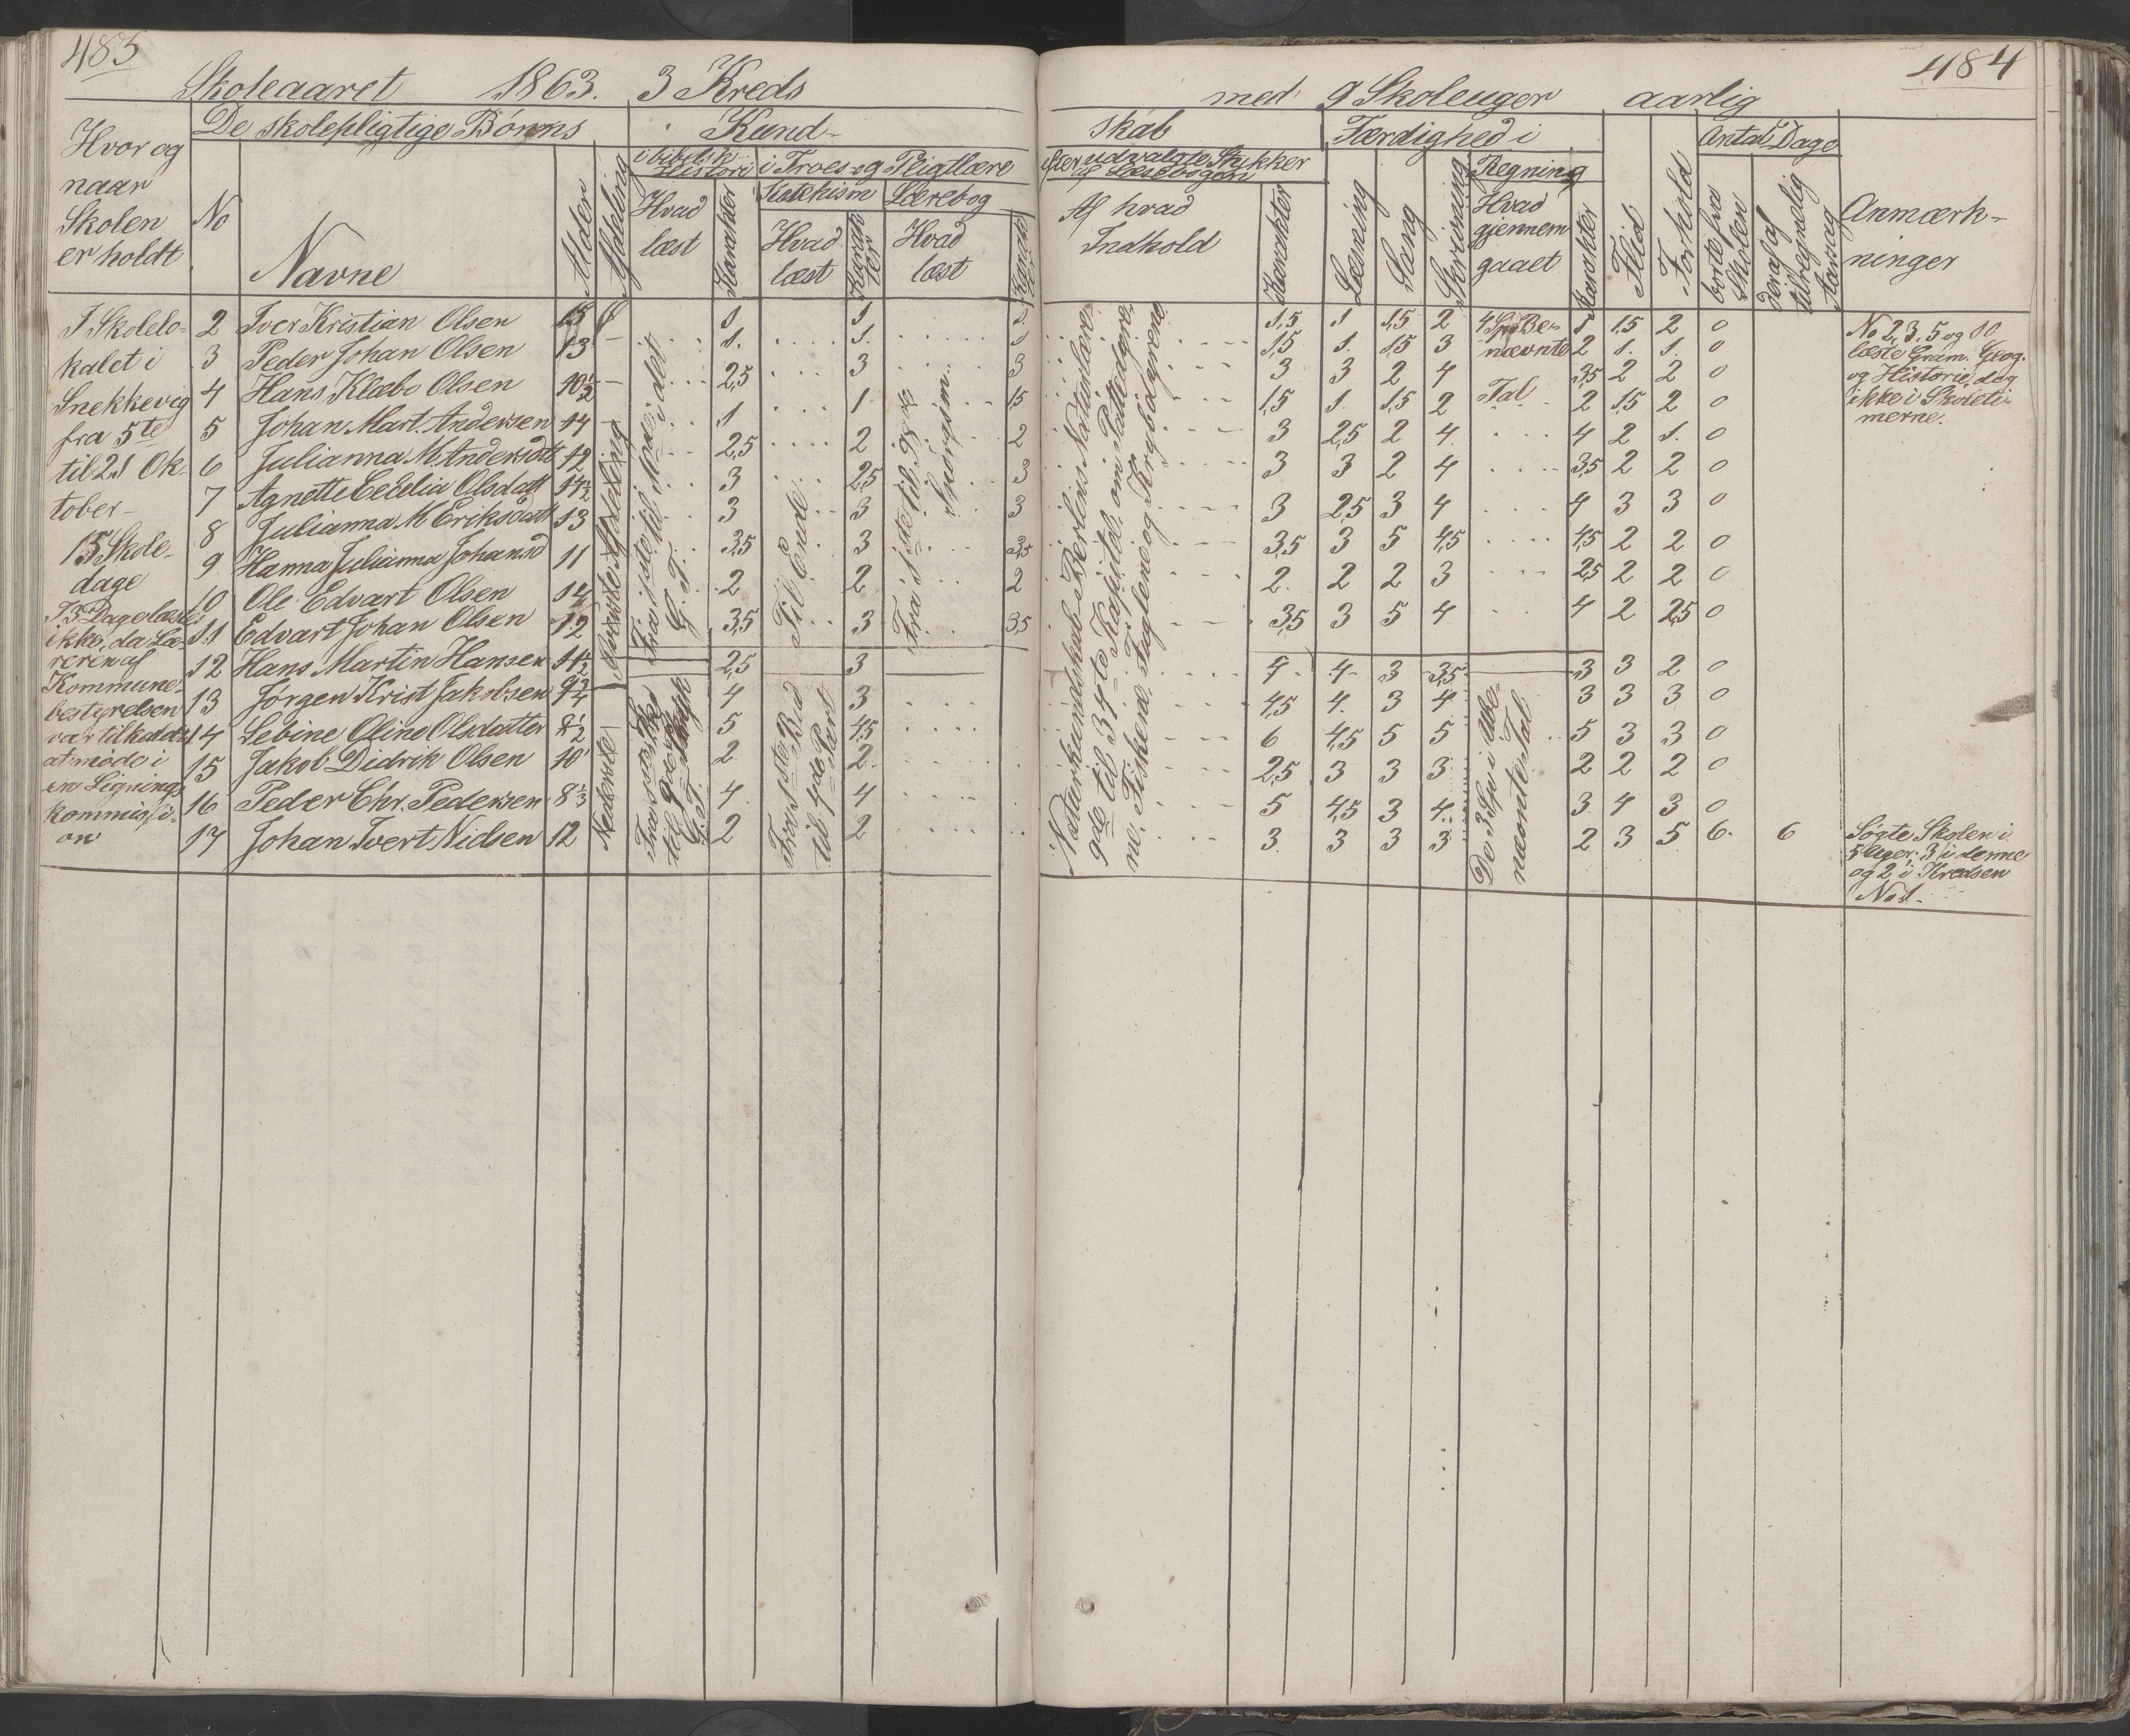 483
Skoleaaret 1863. 3 Kreds
Hvor og
naar
Skolen
er holdt
De skolepligtige Børns
No
Navne
Alder
Afdeling
Kund-
i bibelsk
Historie
Hvad
læst
Karakter
i Troes- og Pligtlære
Katekism
Hvad
læst
Karakter
Lærebog
Hvad
læst
Karakter
I Skolelo-
kalet i
Snekkevig
fra 5te
til 21 Ok-
tober-
15 Skole-
dage
I 3 Dage læstes
ikke, da Læ-
reren af
Kommune-
bestyrelsen
var tilkaldt
at møde i
en Lignings
kommissi-
on
2 Iver Kristian Olsen 15 1 1. 1.
3 Peder Johan Olsen 13 1. 1. 1
4 Hans Klæbo Olsen 10½ 2,5 3 3
5 Johan Mart. Andersen 14 1 1 1,5
6 Julianna M Andersdatt 12 2,5 2 2
7 Agnette Cecelia Olsdatt 14½ 3 2,5 3
8 Julianna M Eriksdatt 13 3 3 3
9 Hanna Julianna Johansd 11 3,5 3 3,5
10 Ole Edvart Olsen 14 2 2 2
11 Edvart Johan Olsen 12 3,5 3 3,5
12 Hans Martin Hansen 14½ 2,5 3
13 Jørgen Krist Jakobsen 9¾ 4 3
14 Sebine Oline Olsdatter 8½ 5 4,5
15 Jakob Didrik Olsen 10 2 2
16 Peder Chr. Pedersen 8⅓ 4 4
17 Johan Ivert Nielsen 12 2 2
Øverste Afdeling
Nederste
Fra 1ste til Mose i det
G. T.
Til Ende
Fra 1ste til
Fra 1ste
til
G. T.
Fra 1ste Bud
til 4de Part
484
med 9 Skoleuger aarlig
skab
efter udvalgte Stykker
af Læsebogen
Af hvad
Indhold
Karakter
Færdighed i
Læsning
Sang
Skrivning
Regning
Hvad
gjennem
gaaet
Karakter
Flid
Forhold
Antal Dage
borte fra
Skolen
deraf af
tilregnelig
Aarsag
Anmærk-
ninger
1,5 1 1,5 2 4 Sp. Be- 1 1,5 2 0
1,5 1. 1,5 3 nævnte 2 1. 1. 0
3 3 2 4 Tal 3,5 2 2 0
1,5 1. 1,5 2 2 1,5 2 0
3 2,5 2 4. 4 2 1. 0
3 3 2 4 3,5 2 2 0
3 2,5 3 4 4 3 3 0
3,5 3 5 4,5 4,5 2 2 0
2. 2 2 3 2,5 2 2 0
3,5 3 5 4 4 2 2,5 0
4 4 3 3,5 3 3 2 0
4,5 4. 3 4 3 3 3 0
6 4,5 5 5 5 3 3 0
2,5 3 3 3 2 2 2 0
5 4,5 3 4. 3 4 3 0
3. 3 3 3 2 3 5 6. 6
Naturkundskab: Berlins Naturlære.
9de til 34te Kapitel om Pattedyre-
ne, Fiskene, Fuglene og Krybdyrene
De 3 Sp. i Ube-
nævnte Tal
No 2, 3, 5 og 10
læste Gram. Geog.
og Historie, dog
ikke i Skoleti-
merne.
Søgte Skolen i
5 Uger: 3 i denne
og 2 i Kredsen
No 1.